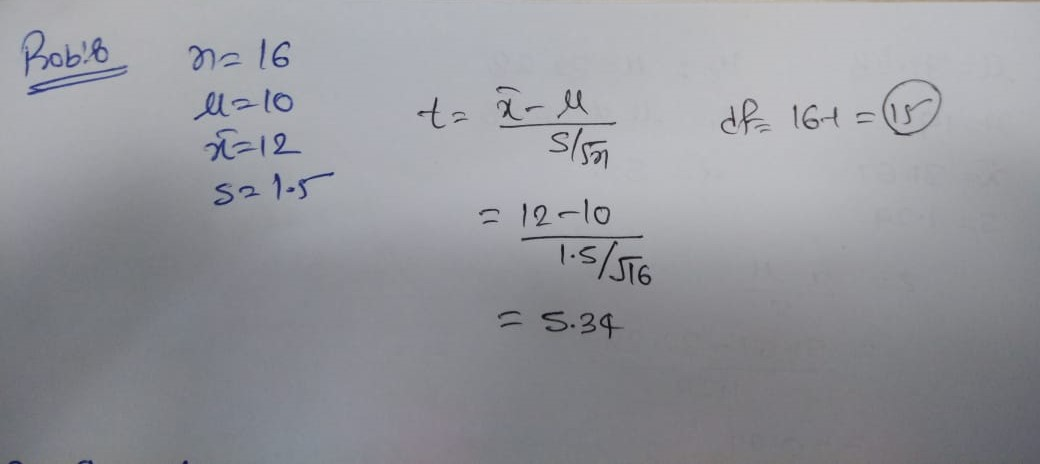 Prob:8
n = 16
μ = 10
x̄ = 12
s = 1.5
t = x̄ - μ / S/√n
= 12 - 10 / 1.5/√16
= 5.34
df = 16-1 = 15